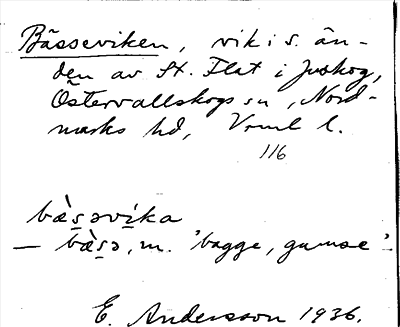 Bässeviken, vik i s. än-
den av St. Flat i Juskog,
Östervallskogs sn, Nord-
marks hd, Vrml l.
116
bæ̀s̠əvi̠ka
— bæ̀s̠ə, m. 'bagge, gumse'.
E. Andersson 1936.